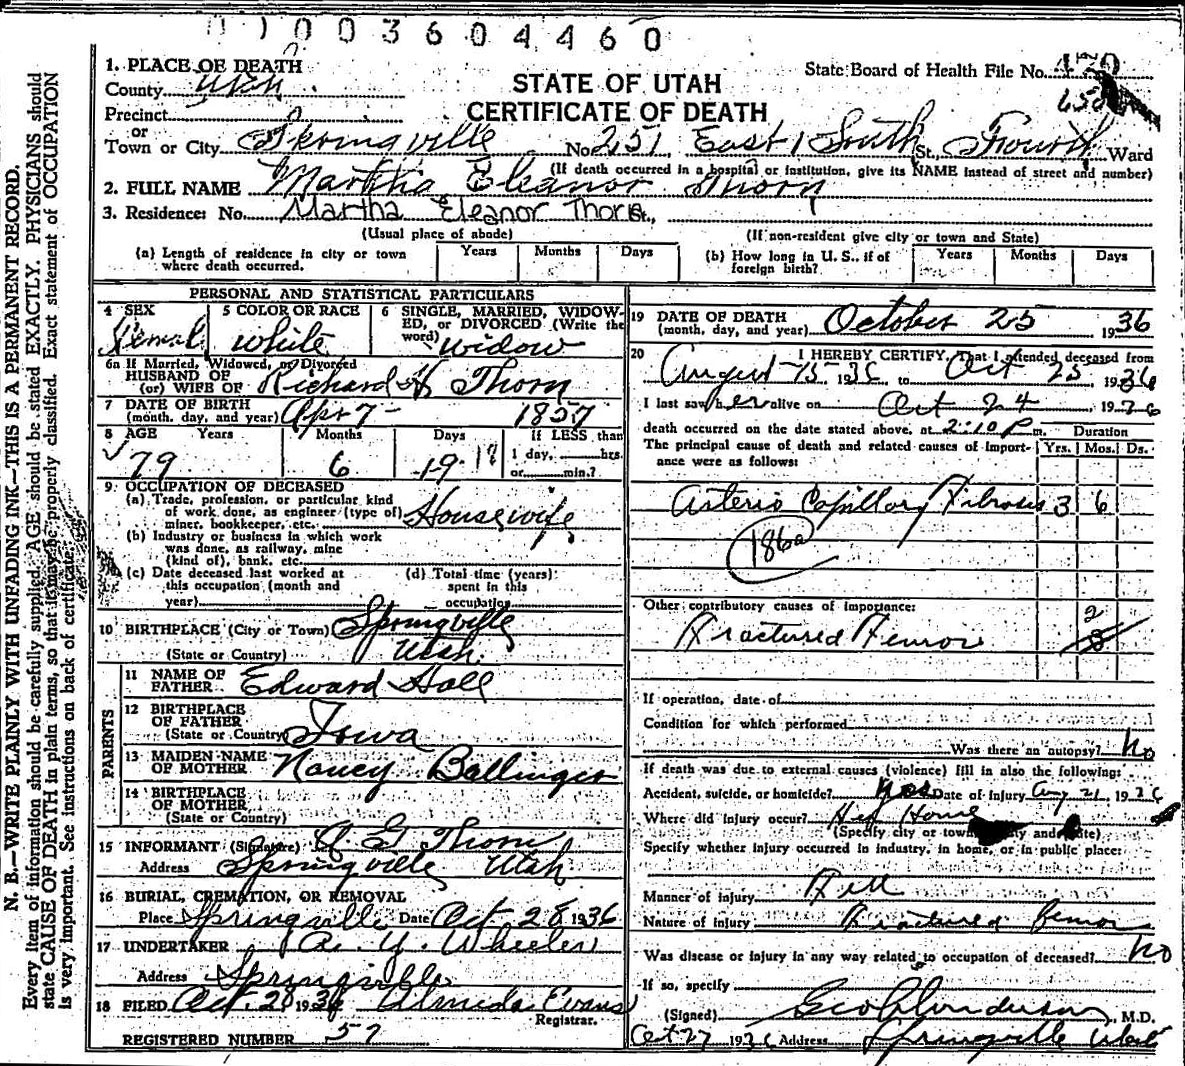 1003604460
N. B.—WRITE PLAINLY WITH UNFADING INK—THIS IS A PERMANENT RECORD.
Every item of information should be carefully supplied. AGE should be stated EXACTLY. PHYSICIANS should
state CAUSE OF DEATH in plain terms, so that it may be properly classified. Exact statement of OCCUPATION
is very important. See instructions on back of certificate.
1. PLACE OF DEATH
County Utah
Precinct
or
Town or City Springville No. 251 East 1 South St., Fourth Ward
STATE OF UTAH
CERTIFICATE OF DEATH
State Board of Health File No.
(If death occurred in a hospital or institution, give its NAME instead of street and number)
2. FULL NAME Martha Eleanor Thorn
3. Residence: No. Martha Eleanor Thorn St.,
(Usual place of abode)
(If non-resident give city or town and State)
(a) Length of residence in city or town where death occurred. Years Months Days
(b) How long in U. S., if of foreign birth? Years Months Days
PERSONAL AND STATISTICAL PARTICULARS
4 SEX Female
5 COLOR OR RACE white
6 SINGLE, MARRIED, WIDOWED, or DIVORCED (Write the word) widow
6a If Married, Widowed, or Divorced
HUSBAND OF
(or) WIFE OF Richard H Thorn
7 DATE OF BIRTH
(month, day, and year) Apr 7- 1857
8 AGE Years Months Days If LESS than
79 6 19 1 day, hrs.
or min.?
9 OCCUPATION OF DECEASED
(a) Trade, profession, or particular kind
of work done, as engineer (type of)
miner, bookkeeper, etc. Housewife
(b) Industry or business in which work
was done, as railway, mine
(kind of), bank, etc.
(c) Date deceased last worked at
this occupation (month and
year)
(d) Total time (years)
spent in this
occupation
10 BIRTHPLACE (City or Town) Springville
(State or Country) Utah.
PARENTS
11 NAME OF
FATHER Edward Hall
12 BIRTHPLACE
OF FATHER
(State or Country) Iowa
13 MAIDEN NAME
OF MOTHER Nancy Ballinger
14 BIRTHPLACE
OF MOTHER
(State or Country)
15 INFORMANT (Signature) G Thorn
Address Springville Utah
16 BURIAL, CREMATION, OR REMOVAL
Place Springville Date Oct 28 1936
17 UNDERTAKER A. Y. Wheeler
Address Springville
18 FILED Oct. 1936 Almeda Evans
Registrar.
REGISTERED NUMBER 57
19 DATE OF DEATH
(month, day, and year) October 25 1936
20 I HEREBY CERTIFY, That I attended deceased from
August 15 1936 to Oct 25 1936
I last saw h er alive on Oct 24 1936
death occurred on the date stated above, at 2:10 P m. Duration
The principal cause of death and related causes of importance were as follows: Yrs. Mos. Ds.
Arterio Capillary Fibrosis 3 6
186a
Other contributory causes of importance:
2
Fractured Femor
If operation, date of
Condition for which performed
Was there an autopsy? No
If death was due to external causes (violence) fill in also the following:
Accident, suicide, or homicide? Yes Date of injury Aug 21, 1936
Where did injury occur? Home
(Specify city or town, county and state)
Specify whether injury occurred in industry, in home, or in public place:
Manner of injury Fell
Nature of injury Fractured Femor
Was disease or injury in any way related to occupation of deceased? No
If so, specify
(Signed) Geo Anderson, M.D.
Oct 27 1936 Address Springville Utah